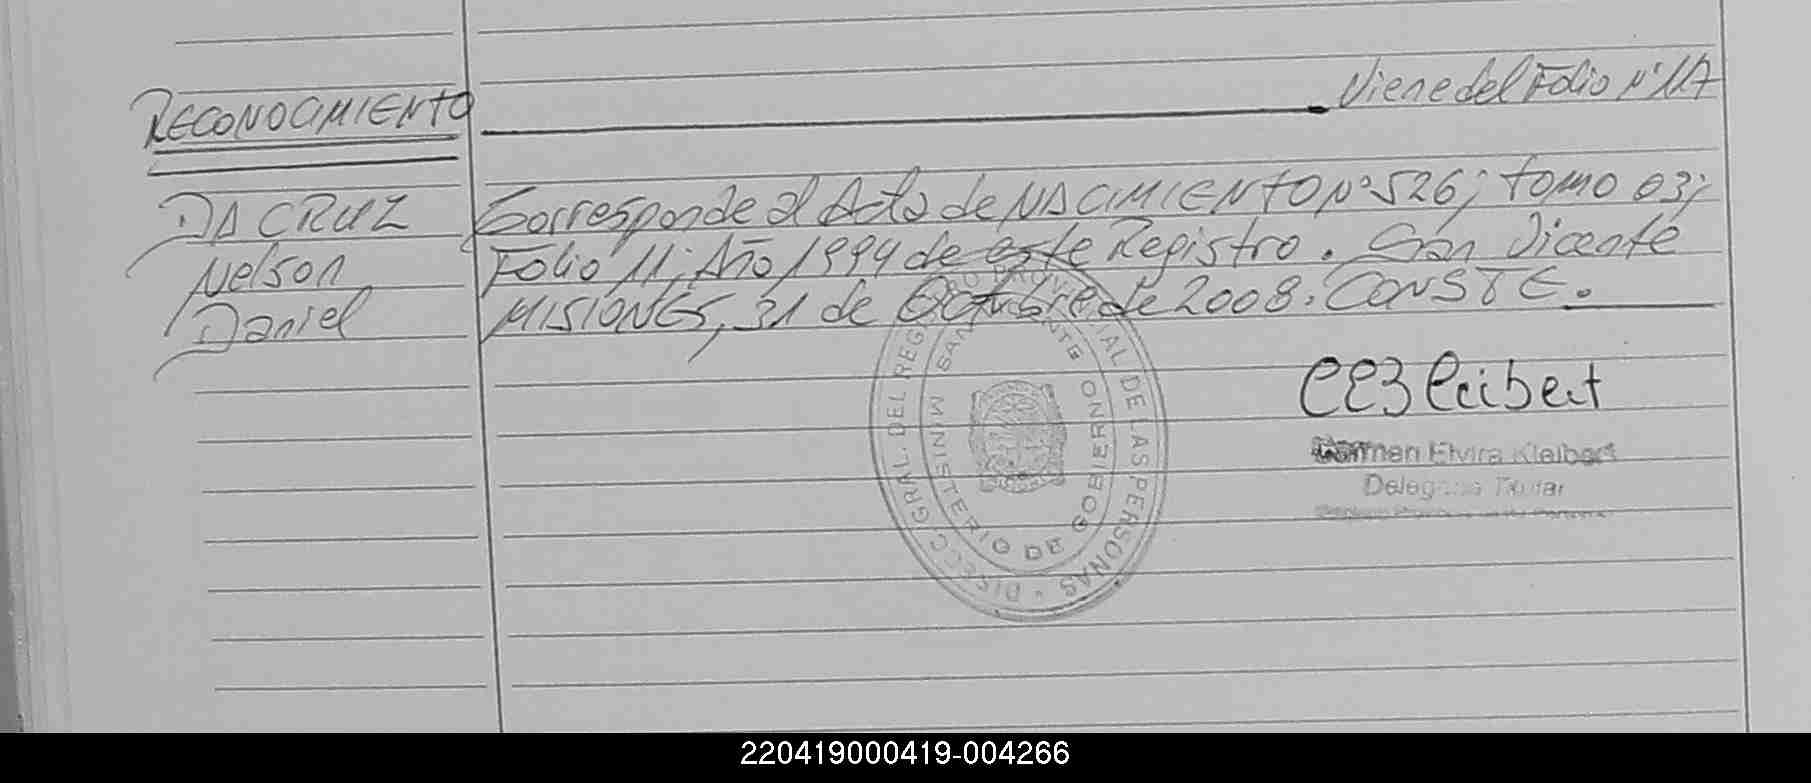 RECONOCIMIENTO
Viene del Folio Nº 117
DA CRUZ
Nelson
Daniel
Corresponde al Acta de NACIMIENTO Nº 526; tomo 03;
Folio 11; Año 1994 de este Registro. San Vicente
MISIONES, 31 de Octubre de 2008. CONSTE.
Carmen Elvira Kleibert
Delegada Titular
DIREC. GRAL. DEL REG PROVINCIAL DE LAS PERSONAS
MINISTERIO DE GOBIERNO
SAN VICENTE
220419000419-004266